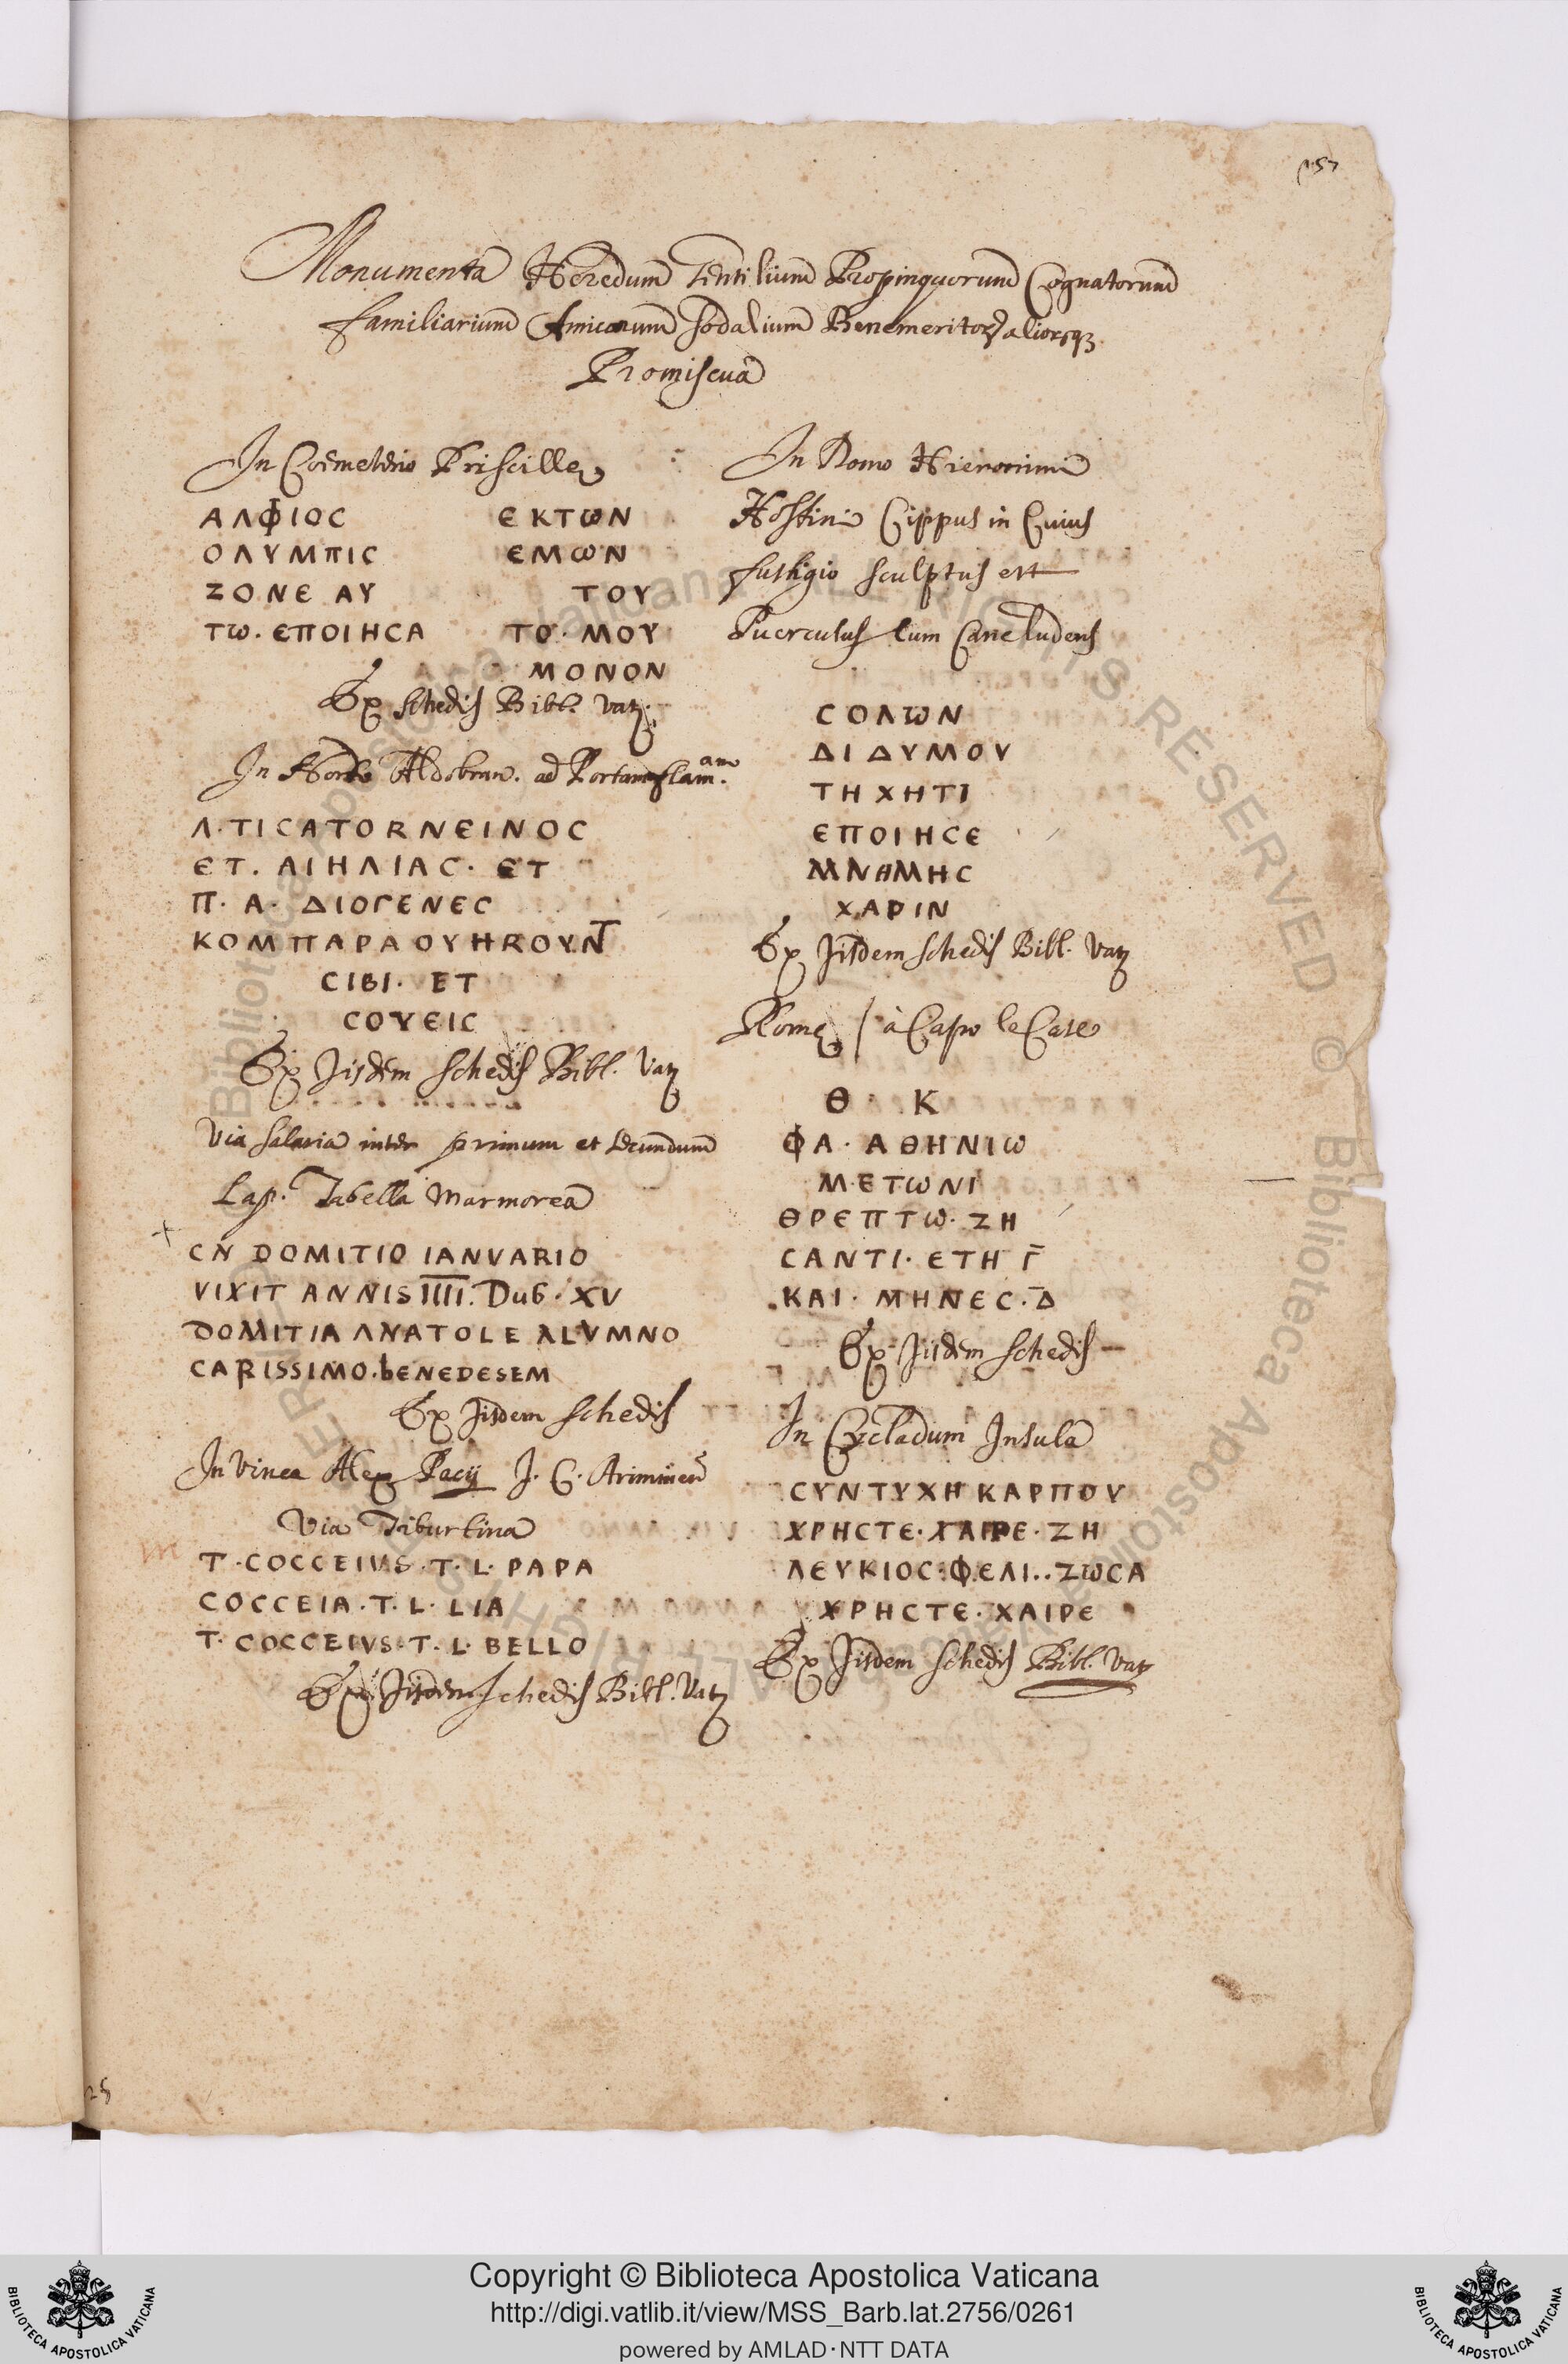 Monumenta Heredum Gentilium Propinquorum Cognatorum
familiarium Amicorum Sodalium Benemeritoꝝ aliorꝗꝫ
Promiscua
In Coemeterio Priscille
ΑΛΦΙΟC ΕΚΤΩΝ
ΟΛΥΜΠΙC ΕΜΩΝ
ΖΟΝΕ ΑΥ ΤΟΥ
ΤΩ. ΕΠΟΙΗCΑ ΤΟ. ΜΟΥ
ΜΟΝΟΝ
Ex schedis Bibl. Vat.
In Horto Aldobran. ad Portam flam.am
Λ.ΤΙCΑΤΟRΝΕΙΝΟC
ΕΤ. ΑΙΗΛΙΑC. ΕΤ
Π. Α. ΔΙΟΓΕΝΕC
ΚΟΜΠΑΡΑΟΥΗRΟΥΝΤ
CΙΒΙ. ΕΤ
CΟΥΕΙC
Ex Jisdem schedis Bibl. Vat
Via Salaria inter primum et secundum
Lap. Tabella Marmorea
CN DOMITIO IANVARIO
VIXIT ANNIS IIII. Dub. XV
DOMITIA ΛNATOLE ALVMNO
CARISSIMO.bENEDESEM
Ex Jisdem schedis
In Vinea Alex Pacij J. C. Ariminen
Via Tiburtina
T.COCCEIVS.T.L.PAPA
COCCEIA.T.L.LIA
T.COCCEIVS.T.L.BELLO
Ex Jisdem schedis Bibl. Vat
157
In Domo Hieronimi
Hostini Cippus in Cuius
fastigio sculptus est
Puerculus Cum Cane ludens
CΟΛΩΝ
ΔΙΔΥΜΟΥ
ΤΗ ΧΗΤΙ
ΕΠΟΙΗCΕ
ΜΝΗΜΗC
ΧΑΡΙΝ
Ex Jisdem schedis Bibl. Vat
Rome / à Capo le Case
Θ. Κ
ΦΑ. ΑΘΗΝΙΩ
Μ.ΕΤΩΝΙ
ΘΡΕΠΤΩ. ΖΗ
CΑΝΤΙ. ΕΤΗ Γ̄
ΚΑΙ. ΜΗΝΕC. Δ̄
Ex Jisdem schedis
In Cycladum Insula
CΥΝΤΥΧΗ ΚΑΡΠΟΥ
ΧΡΗCΤΕ. ΧΑΙΡΕ. ΖΗ
ΛΕΥΚΙΟC.ΦΕΛΙ..ΖΩCΑ
ΧΡΗCΤΕ. ΧΑΙΡΕ
Ex Jisdem schedis Bibl. Vat
25
Copyright © Biblioteca Apostolica Vaticana
http://digi.vatlib.it/view/MSS_Barb.lat.2756/0261
powered by AMLAD·NTT DATA
BIBLIOTECA APOSTOLICA VATICANA
BIBLIOTECA APOSTOLICA VATICANA